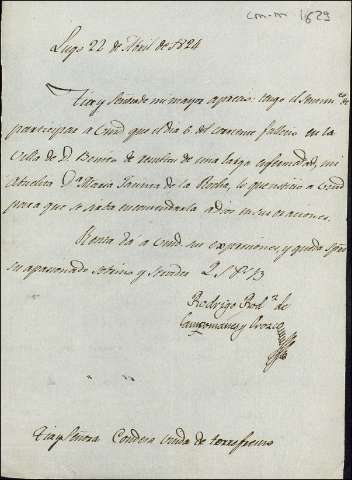 1829
Lugo 22 de Abril de 1824
Tia y Señora de mi mayor aprecio: tengo el de
participar a Vmd que el dia 6 del corriente fallecio en la
Villa de Dn Benito de resultas de una larga enfermedad, mi
Abuelita Da Maria de la Rocha, lo que noticio a Vmd
para que se sirba encomendarla a Dios en sus oraciones.
dá a Vmd sus expresiones, y queda
su apasionado sobrino y Servidor Q. S. P. B.
Rodrigo Rodz de
Campomanes y Orozco
Tia y Señora Condesa Viuda de torrefresno